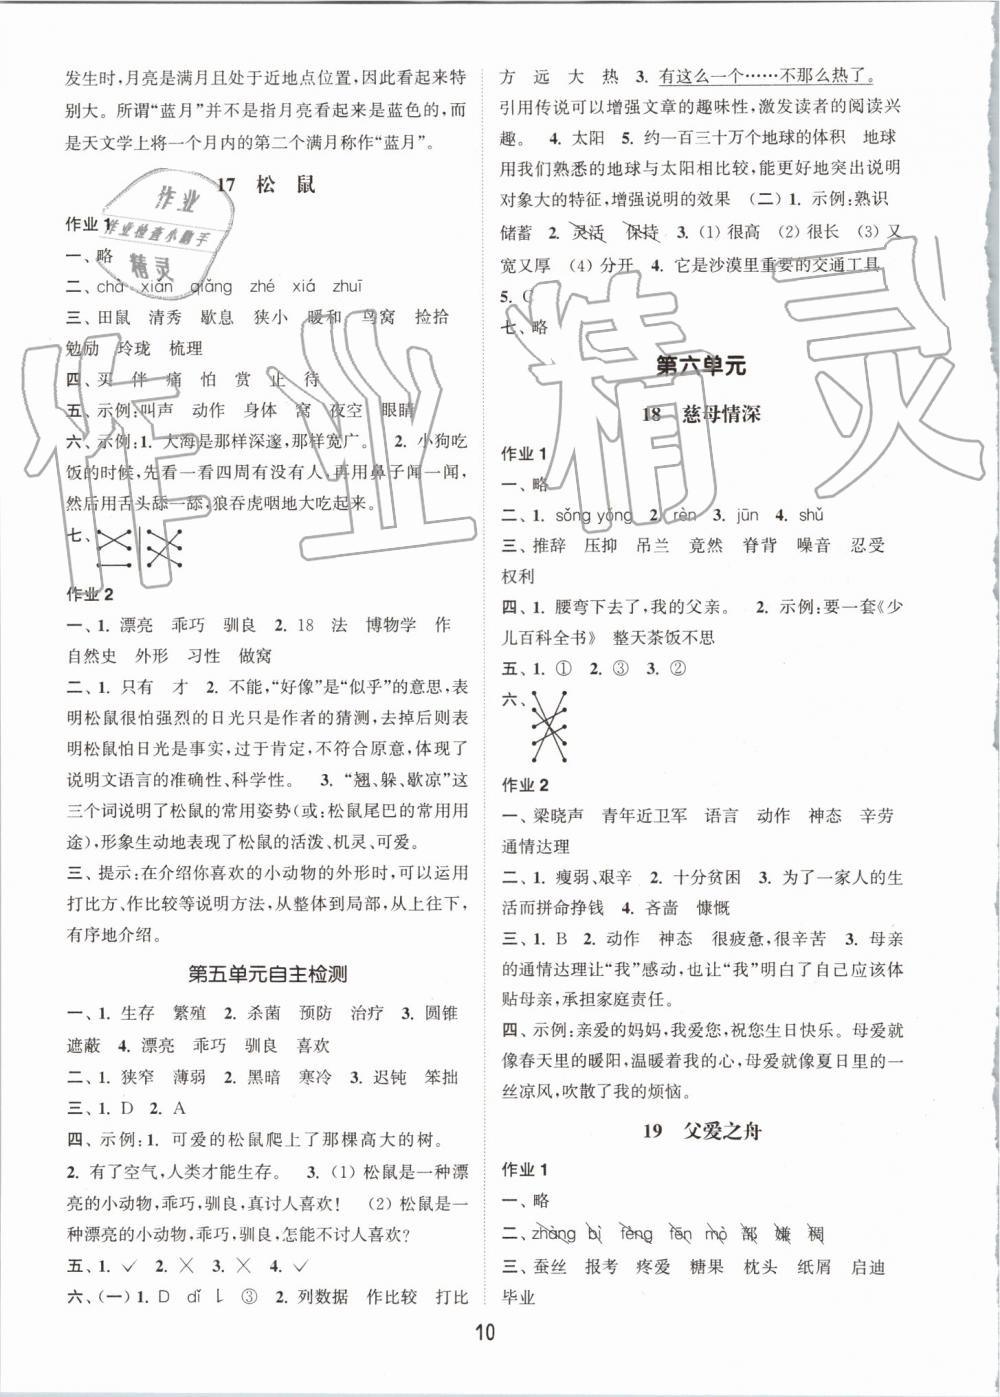 发生时,月亮是满月且处于近地点位置,因此看起来特
别大。所谓“蓝月”并不是指月亮看起来是蓝色的,而
是天文学上将一个月内的第二个满月称作“蓝月”。
17 松 鼠
作业 1
一、略
二、chà xiān qiǎng zhé xiá zhuī
三、田鼠 清秀 歇息 狭小 暖和 鸟窝 捡拾
勉励 玲珑 梳理
四、买 伴 痛 怕 赏 止 待
五、示例:叫声 动作 身体 窝 夜空 眼睛
六、示例:1. 大海是那样深邃,那样宽广。 2. 小狗吃
饭的时候,先看一看四周有没有人,再用鼻子闻一闻,
然后用舌头舔一舔,狼吞虎咽地大吃起来。
七、
作业 2
一、1. 漂亮 乖巧 驯良 2. 18 法 博物学 作
自然史 外形 习性 做窝
二、1. 只有 才 2. 不能,“好像”是“似乎”的意思,表
明松鼠很怕强烈的日光只是作者的猜测,去掉后则表
明松鼠怕日光是事实,过于肯定,不符合原意,体现了
说明文语言的准确性、科学性。 3. “翘、躲、歇凉”这
三个词说明了松鼠的常用姿势(或:松鼠尾巴的常用用
途),形象生动地表现了松鼠的活泼、机灵、可爱。
三、提示:在介绍你喜欢的小动物的外形时,可以运用
打比方、作比较等说明方法,从整体到局部,从上往下,
有序地介绍。
第五单元自主检测
一、1. 生存 繁殖 2. 杀菌 预防 治疗 3. 圆锥
遮蔽 4. 漂亮 乖巧 驯良 喜欢
二、1. 狭窄 薄弱 2. 黑暗 寒冷 3. 迟钝 笨拙
三、1. D 2. A
四、示例:1. 可爱的松鼠爬上了那棵高大的树。
2. 有了空气,人类才能生存。 3. (1) 松鼠是一种漂
亮的小动物,乖巧,驯良,真讨人喜欢! (2) 松鼠是一
种漂亮的小动物,乖巧,驯良,怎能不讨人喜欢?
五、1. ✓ 2. × 3. × 4. ✓
六、(一) 1. D dǐ 乚 ③ 2. 列数据 作比较 打比
方 远 大 热 3. 有这么一个……不那么热了。
引用传说可以增强文章的趣味性,激发读者的阅读兴
趣。 4. 太阳 5. 约一百三十万个地球的体积 地球
用我们熟悉的地球与太阳相比较,能更好地突出说明
对象大的特征,增强说明的效果 (二) 1. 示例:熟识
储蓄 2. 灵活 保持 3. (1) 很高 (2) 很好 (3) 又
宽又厚 (4) 分开 4. 它是沙漠里重要的交通工具
5. C
七、略
第六单元
18 慈母情深
作业 1
一、略
二、1. sǒng yóng 2. rèn 3. jūn 4. shǔ
三、推辞 压抑 吊兰 竟然 脊背 噪音 忍受
权利
四、1. 腰弯下去了,我的父亲。 2. 示例:要一套《少
儿百科全书》 整天茶饭不思
五、1. ① 2. ③ 3. ②
六、
作业 2
一、梁晓声 青年近卫军 语言 动作 神态 辛劳
通情达理
二、1. 瘦弱、艰辛 2. 十分贫困 3. 为了一家人的生
活而拼命挣钱 4. 吝啬 慷慨
三、1. B 2. 动作 神态 很疲惫,很辛苦 3. 母亲
的通情达理让“我”感动,也让“我”明白了自己应该体
贴母亲,承担家庭责任。
四、示例:亲爱的妈妈,我爱您,祝您生日快乐。母爱就
像春天里的暖阳,温暖着我的心,母爱就像夏日里的一
丝凉风,吹散了我的烦恼。
19 父爱之舟
作业 1
一、略
二、zhàng bì fèng fēn mò 部 嫌 稠
三、蚕丝 报考 疼爱 糖果 枕头 纸屑 启迪
毕业
10
作业
作业检查小助手
精灵
作业精灵